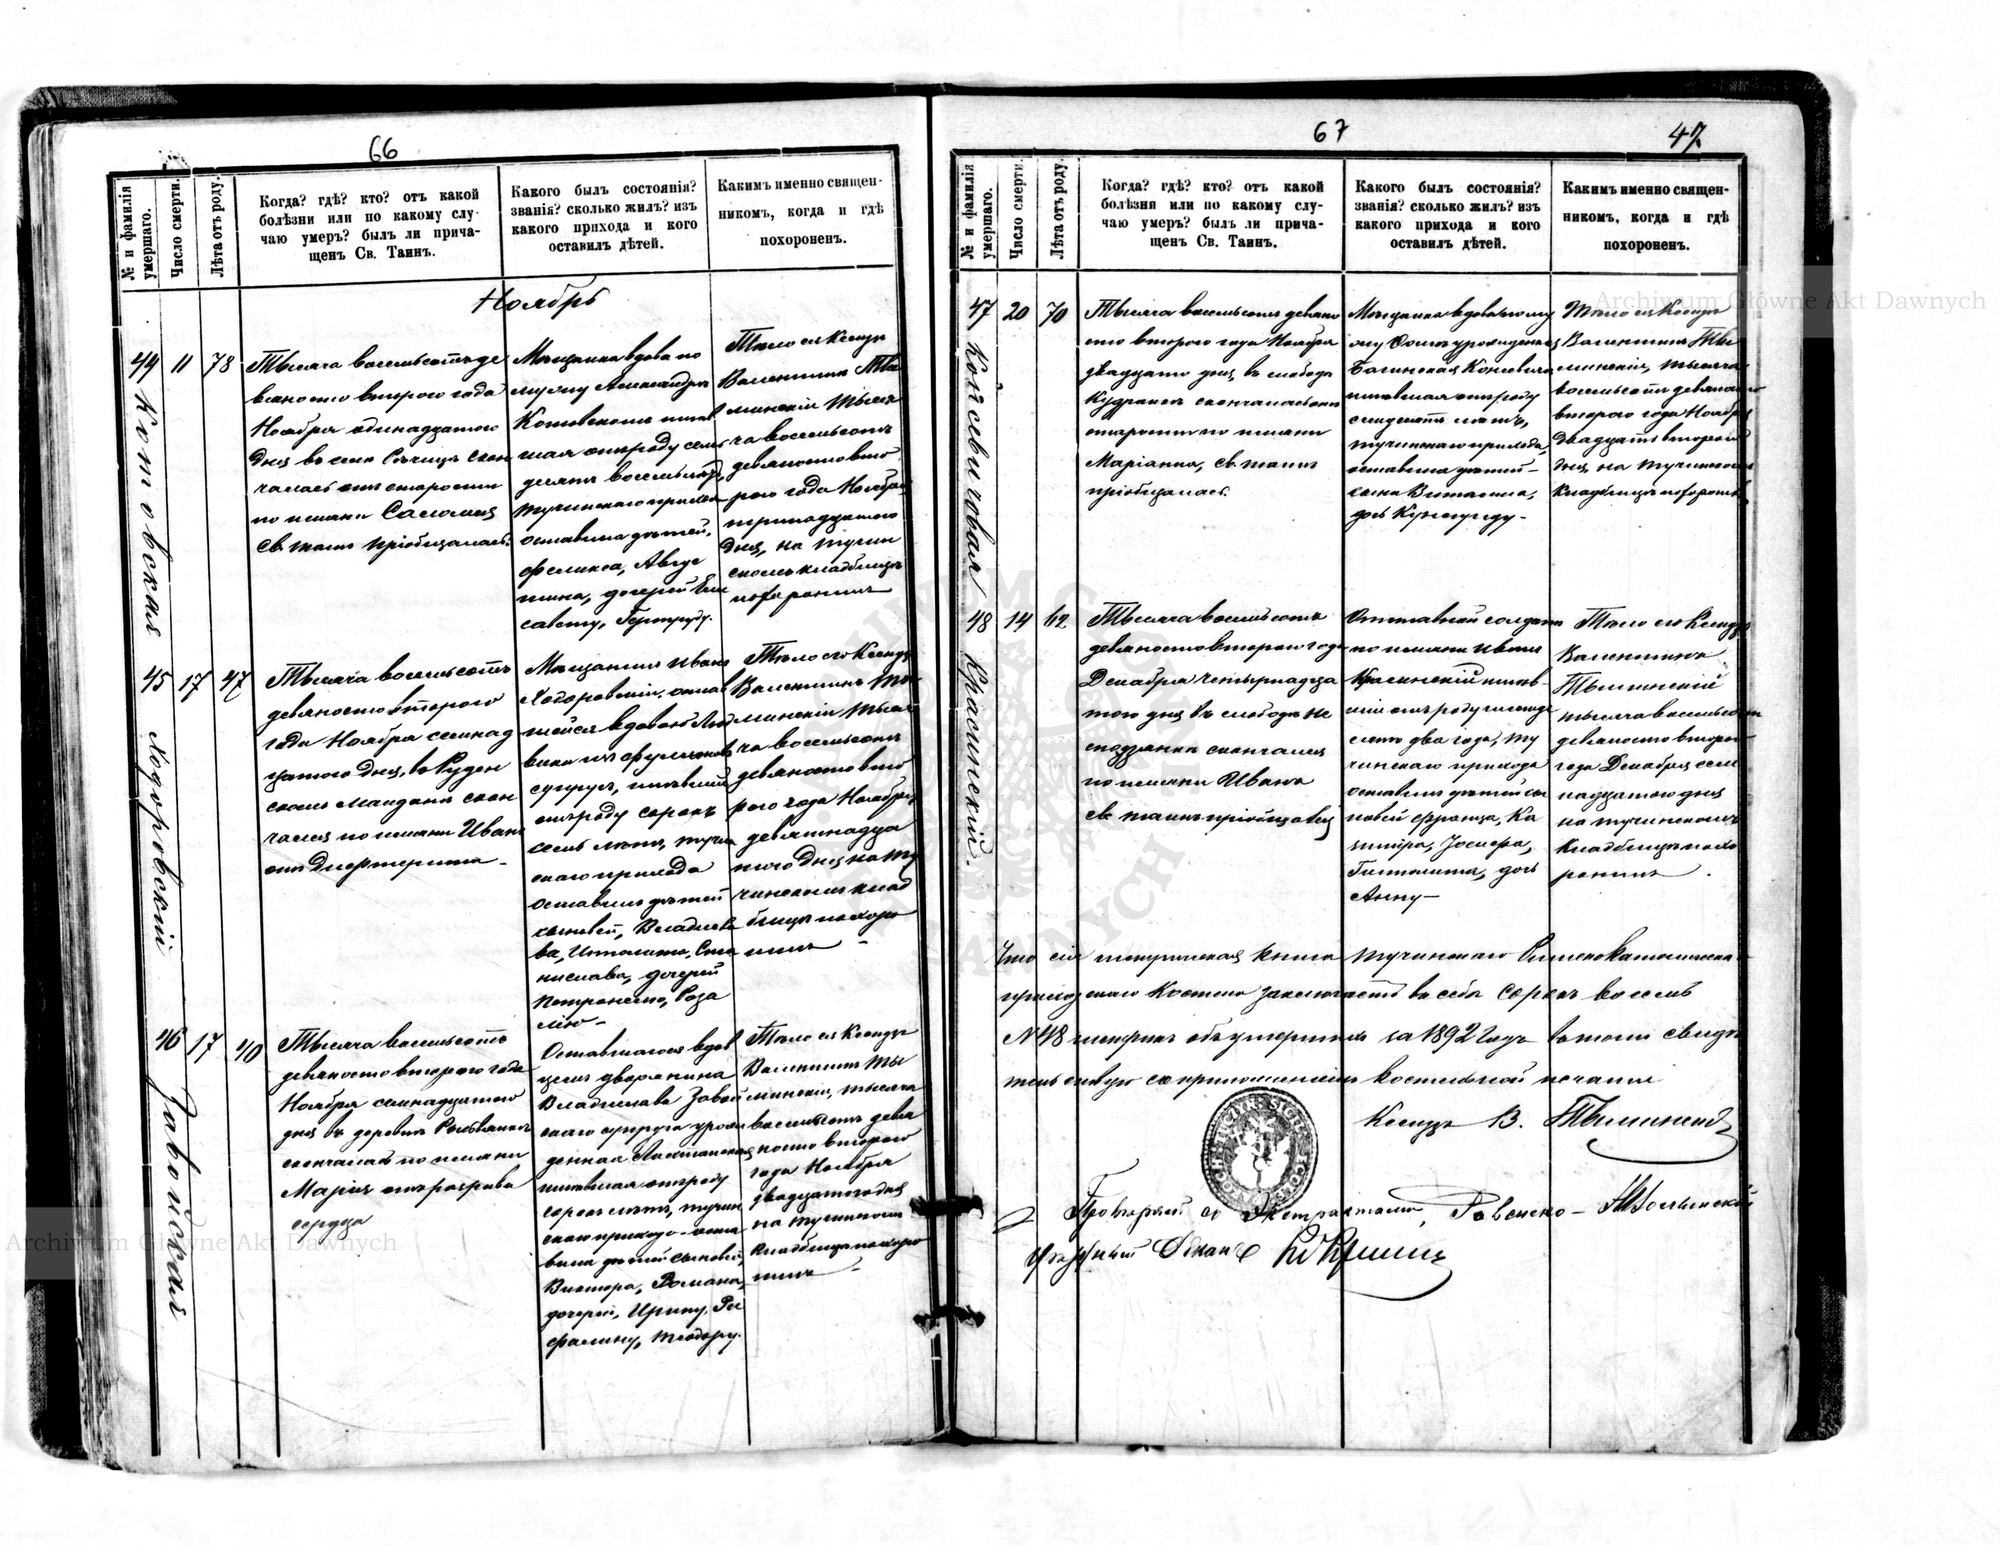 66
№ и фамилія умершаго.
Число смерти.
Лѣта отъ роду.
Когда? гдѣ? кто? отъ какой
болѣзни или по какому слу-
чаю умеръ? былъ ли прича-
щенъ Св. Таинъ.
Какого былъ состоянія?
званія? сколько жилъ? изъ
какого прихода и кого
оставилъ дѣтей.
Какимъ именно священ-
никомъ, когда и гдѣ
похороненъ.
Ноябрь
44 11 78
Котовская
Тысяча восемьсотъ де
вяносто второго года
Ноября одинадцатого
дня въ селе скон
чалась отъ старости
по имени Саломея
Св. таинъ пріобщалась.
Мѣщанка вдова по
мужу Александра
Котовскомъ имѣв
шая отъ роду семь
десятъ восемь лѣтъ,
тучинскаго прихода
оставила дѣтей,
Феликса, Авгус
тина, дочерей Ели
савету, Гертруду.
Тѣло ея Ксендзъ
Валентинъ Ты
минскій тысяч
ча восемьсотъ
девяносто вто
рого года Ноября
тринадцатого
дня, на тучин
скомъ кладбищѣ
похоронилъ
45 17 47
Ходоровскій
Тысяча восемьсотъ
девяносто второго
года Ноября семнад
цатого дня, въ Руден
скомъ Майданѣ скон
чался по имени Иванъ
отъ Дифтерита -
Мѣщанинъ Иванъ
Ходоровскій, остав
шейся вдовою
супругъ, имѣвшій
отъ роду сорокъ
семь лѣтъ, тучин
скаго прихода
оставилъ дѣтей
сыновей, Владисла
ва, Ипполита, Ста
нислава, дочерей
Петронелю, Роза
лію -
Тѣло его Ксендзъ
Валентинъ Ты
минскій тыся
ча восемьсотъ
девяносто вто
рого года Ноября,
девятнадца
того дня на ту
чинскомъ клад
бищѣ похоро
нилъ -
46 17 40
Завойская
Тысяча восемьсотъ
девяносто второго года
Ноября семнадцатого
дня въ деревнѣ
скончалась по имени
Марія отъ разрыва
сердца
Оставшагося вдов
цемъ дворянина
Владислава Завой
скаго супруга урож
денная
имѣвшая отъ роду
сорокъ лѣтъ, тучин
скаго прихода - оста
вила дѣтей сыновей,
Виктора, Романа,
дочерей, Ирину,
фалину, Теодору.
Тѣло ея Ксендзъ
Валентинъ Ты
минскій, тысяча
восемьсотъ девя
носто второго
года Ноября
двадцатого дня
на тучинскомъ
кладбищѣ похоро
нилъ -
67
47
№ и фамилія умершаго.
Число смерти.
Лѣта отъ роду.
Когда? гдѣ? кто? отъ какой
болѣзни или по какому слу-
чаю умеръ? былъ ли прича-
щенъ Св. Таинъ.
Какого былъ состоянія?
званія? сколько жилъ? изъ
какого прихода и кого
оставилъ дѣтей.
Какимъ именно священ-
никомъ, когда и гдѣ
похороненъ.
47 20 70
Тысяча восемьсотъ девяно
сто второго года Ноября
двадцатого дня, въ слободѣ
скончалась отъ
старости по имени
Маріанна, св. таинъ
пріобщалась.
Мѣщанка вдова по му
жу урожденная
имѣвшая отъ роду
семдесятъ лѣтъ,
тучинскаго прихода,
оставила дѣтей -
сына Виталиса,
дочь Кунегунду -
Тѣло ея Ксендзъ
Валентинъ Ты
минскій, тысяча
восемьсотъ девяносто
второго года Ноября
двадцать второго
дня, на тучинскомъ
кладбищѣ похоронилъ
48 14 62
Красинскій
Тысяча восемьсотъ
девяносто второго года
Декабря четырнадца
того дня въ слободѣ
скончался
по имени Иванъ
св. таинъ пріобщался
Отставной солдатъ
по имени Иванъ
Красинскій имѣв-
шій отъ роду шесдя
сятъ два года, ту
чинскаго прихода
оставилъ дѣтей сы
новей Франца, Ка
зимира, Іосифа,
дочь
Анну -
Тѣло его Ксендзъ
Валентинъ
Тыминскій
тысяча восемьсотъ
девяносто второго
года Декабря сем
надцатого дня
на тучинскомъ
кладбищѣ похо
ронилъ.
Что сія метрическая книга тучинскаго Римско Католическа
приходскаго Костела заключаетъ въ себѣ сорокъ восемь
N 48 метрикъ объ умершихъ за 1892 годъ въ томъ свидѣ
тельствую съ приложеніемъ костельной печати
Ксендзъ В. Тыминскій
Провѣрялъ съ Экстрактами, Ровенско -
Деканъ
Archiwum Główne Akt Dawnych
Archiwum Główne Akt Dawnych